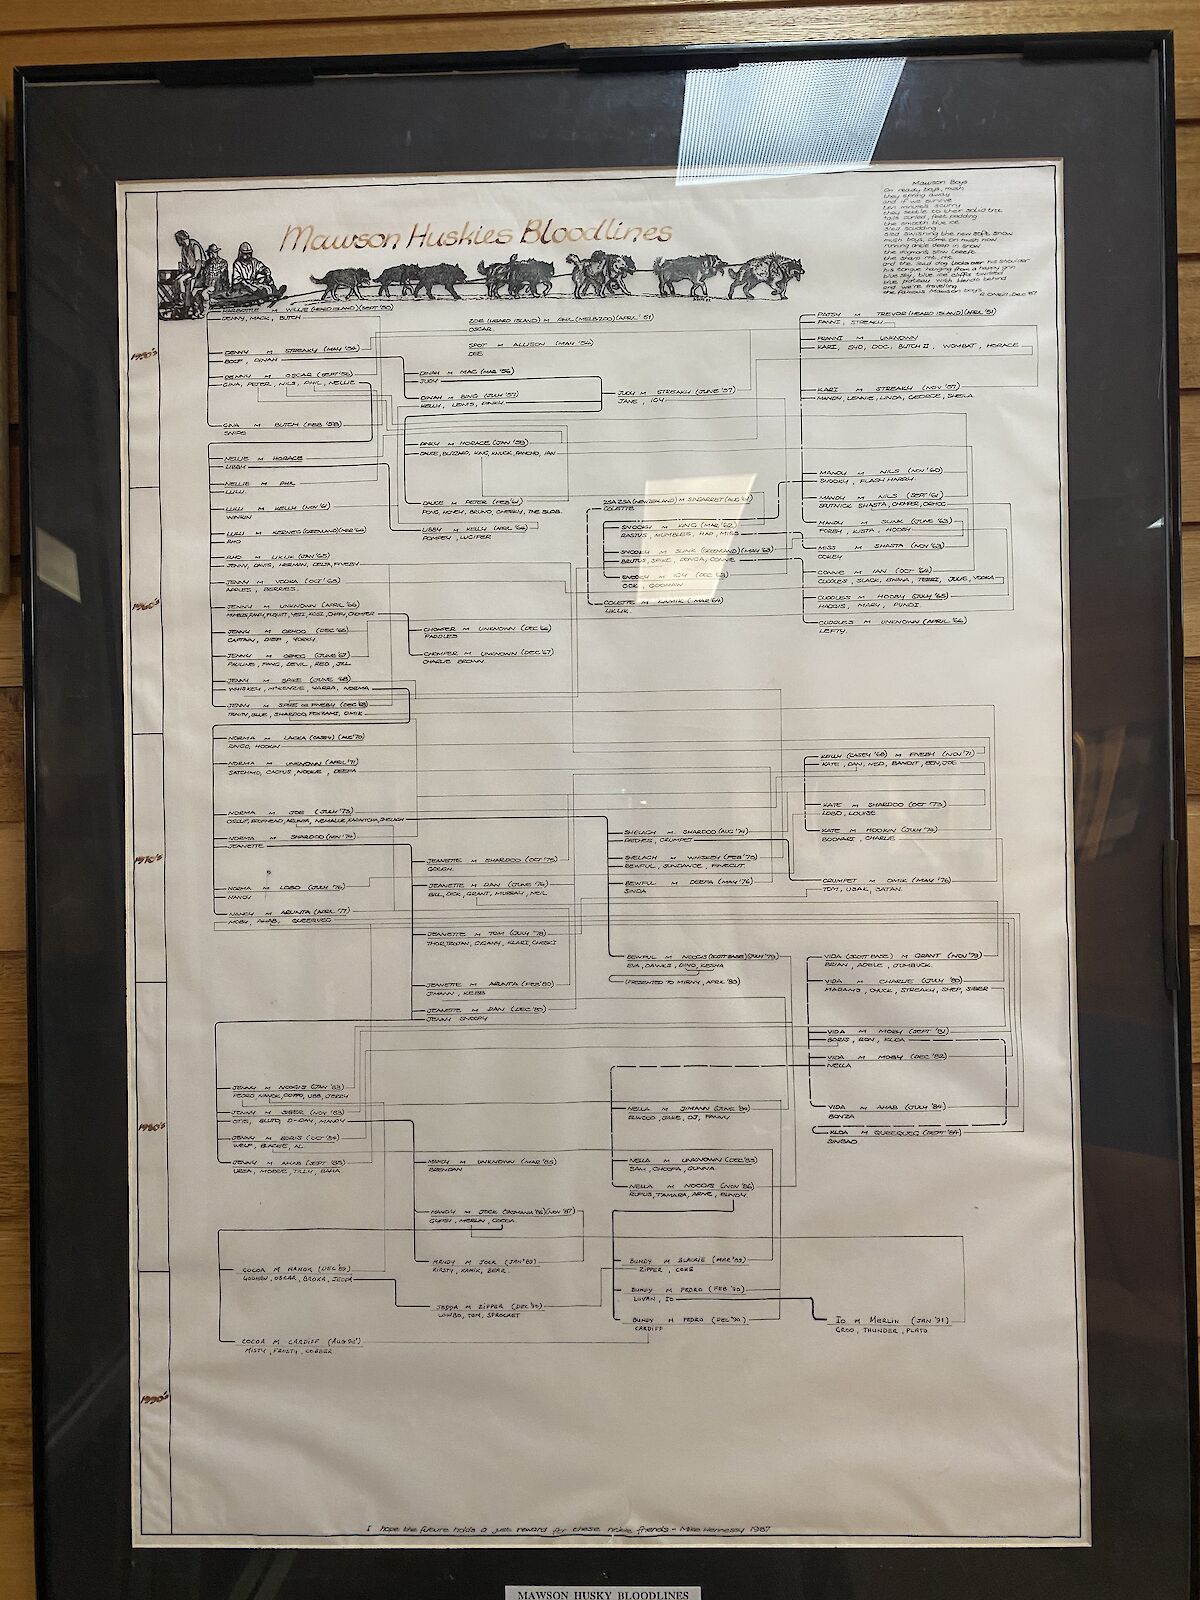 Mawson Huskies Bloodlines
Mawson Boys
they spring away
and if we survive
ten minutes scurry
they settle to their solid trot
tails curled, feet padding
the smooth blue ice
sled scudding
sled swishing the new soft snow
mush boys, come on mush now
running ankle deep in snow
and the lead dog looks over his shoulder
his tongue hanging from a happy grin
and we're travelling
the famous Mawson boys
1950's
M WILLIE (HEARD ISLAND) (SEPT '50)
DENNY, MACK, BUTCH
ZOE (HEARD ISLAND) M PHIL (MELB ZOO) (APRIL '51)
OSCAR
PATSY M TREVOR (HEARD ISLAND) (APRIL '51)
FANNI, STREAKY
SPOT M ALLISON (MAY '54)
DEE
FRANNI M UNKNOWN
KARI, SYD, DOC, BUTCH II, WOMBAT, HORACE
DENNY M STREAKY (MAY '54)
BOOF, DINAH
DENNY M OSCAR (SEPT '56)
GINA, PETER, NILS, PHIL, NELLIE
DINAH M MAC (MAR '56)
JUDY
DINAH M BING (JULY '57)
KELLY, LEWIS, PINKY
JUDY M STREAKY (JUNE '57)
JANE, IGY
KARI M STREAKY (NOV '57)
MANDY, LENNIE, LINDA, GEORGE, SHEILA
GINA M BUTCH (FEB '58)
SNIPS
PINKY M HORACE (JAN '59)
DAUCE, BLIZZARD, KING, KNUCK, PANCHO, IAN
NELLIE M HORACE
LIBBY
NELLIE M PHIL
LULU
1960's
MANDY M NILS (NOV '60)
SNOOKY, FLASH HARRY
MANDY M NILS (SEPT '61)
SPUTNICK, SHASTA, CHOMPER, ORHOO
DAUCE M PETER (FEB '61)
PONG, HONEY, BRUNO, CHEEKY, THE SLOB
LULU M KELLY (NOV '61)
WINKIN
LIBBY M KELLY (APRIL '64)
POMPEY, LUCIFER
COLETTE
SNOOKY M KING (MAR '62)
RASTUS, MUMBLES, HAP, MISS
SNOOKY M SUNK (GREENLAND) (MAY '63)
BRUTUS, SPIKE, DONGA, CONNIE
SNOOKY M IGY (DEC '63)
OCK, GOONAW
COLETTE M KAMIK (MAR '64)
LIKLIK
MISS M SHASTA (NOV '63)
COKEY
CONNIE M IAN (OCT '64)
CUDDLES, SLACK, BWANA, TERRI, JULIE, VODKA
CUDDLES M HOOBY (JULY '65)
HAGGIS, MARY, PUNDI
CUDDLES M UNKNOWN (APRIL '66)
LEFTY
RHO
RHO M LIKLIK (JAN '65)
JENNY, DAVIS, HERMAN, DELTA, FIVEBY
JENNY M VODKA (OCT '65)
APPLES, BERRIES
JENNY M UNKNOWN (APRIL '66)
JENNY M ORHOO (DEC '66)
CAPTAIN, DIEP, YORKY
CHOMPER M UNKNOWN (DEC '66)
PADDLES
CHOMPER M UNKNOWN (DEC '67)
CHARLIE BROWN
JENNY M ORHOO (JUNE '67)
PAULINE, FANG, DEVIL, RED, JILL
JENNY M SPIKE (JUNE '68)
WHISKEY, McKENZIE, YARRA, NORMA
JENNY M SPIKE OR FIVEBY (DEC '69)
1970's
NORMA M LASKA (CASEY) (AUG '70)
RINGO, HOOKIN
NORMA M UNKNOWN (APRIL '71)
SATCHMO, CACTUS, NOOKIE, DEEPA
KELLY (CASEY '68) M FIVEBY (NOV '71)
KATE, DAN, NED, BANDIT, BEN, JOE
KATE M SHARDOO (OCT '73)
LOBO, LOUISE
KATE M HOOKIN (JULY '74)
BOONARI, CHARLIE
NORMA M JOE (JULY '73)
NORMA M SHARDOO (NOV '74)
JEANETTE
SHELAGH M SHARDOO (AUG '74)
PATCHES, CRUMPET
SHELAGH M WHISKEY (FEB '75)
BEWFUL, SUNDANCE, FINECUT
BEWFUL M DEEPA (MAY '76)
SINDA
CRUMPET M OMIK (MAY '76)
TOM, USAK, SATAN
JEANETTE M SHARDOO (OCT '75)
GOUGH
JEANETTE M DAN (JUNE '76)
BILL, DICK, GRANT, MURRAY, NEIL
NORMA M LOBO (JULY '76)
NANCY
NANCY M ARUNTA (APRIL '77)
MOBY, AHAB, QUEEQUEG
JEANETTE M TOM (JULY '78)
BEWFUL M NOOGIS (SCOTT BASE) (JULY '79)
EVA, DAWKS, DINO, KESHA
(PRESENTED TO MIRNY, APRIL '83)
VIDA (SCOTT BASE) M GRANT (NOV '79)
BRIAN, ADELE, JUMBUCK
1980's
VIDA M CHARLIE (JULY '80)
MADAMS, CHUCK, STREAKY, SHEP, SIBER
JEANETTE M ARUNTA (FEB '80)
JIMANN, KEBB
JEANETTE M DAN (DEC '80)
JENNY SNOOPY
VIDA M MOBY (SEPT '81)
BORIS, RON, KLOA
VIDA M MOBY (DEC '82)
NELLA
VIDA M AHAB (JULY '84)
BONZA
KLOA M QUEEQUEG (SEPT '84)
SINBAD
JENNY M NOOGIS (JAN '83)
JENNY M SIBER (NOV '83)
OTIS, BLUTO, D-DAY, MANDY
JENNY M BORIS (OCT '84)
WELF, BLACKIE, AL
JENNY M AHAB (SEPT '85)
URSA, MORRIE, TILLY, BAHA
NELLA M JIMANN (JUNE '84)
ELWOOD, JAKE, OJ, FANNY
MANDY M UNKNOWN (MAR '85)
BRENDAN
NELLA M UNKNOWN (DEC '85)
SAM, CHOOFA, GUNNA
NELLA M NOOGIS (NOV '86)
RUFUS, TAMARA, ARNE, BUNDY
MANDY M JOCK (TASMANIA '86) (NOV '87)
GYPSY, MERLIN, COCOA
MANDY M JOCK (JAN '89)
KIRSTY, KAMIK, BEAR
BUNDY M BLACKIE (MAR '89)
ZIPPER, COKE
COCOA M NANOK (DEC '89)
GOOHEW, OSCAR, BROKA, JEDDA
BUNDY M PEDRO (FEB '90)
LOVAN, IO
JEDDA M ZIPPER (DEC '90)
LOWBO, TOM, SPROCKET
BUNDY M PEDRO (DEC '90)
CARDIFF
IO M MERLIN (JAN '91)
GROO, THUNDER, PLATO
COCOA M CARDIFF (AUG '92)
MISTY, FROSTY, COBBER
1990's
I hope the future holds a just reward for these noble friends - Mike Hennessy 1987
MAWSON HUSKY BLOODLINES